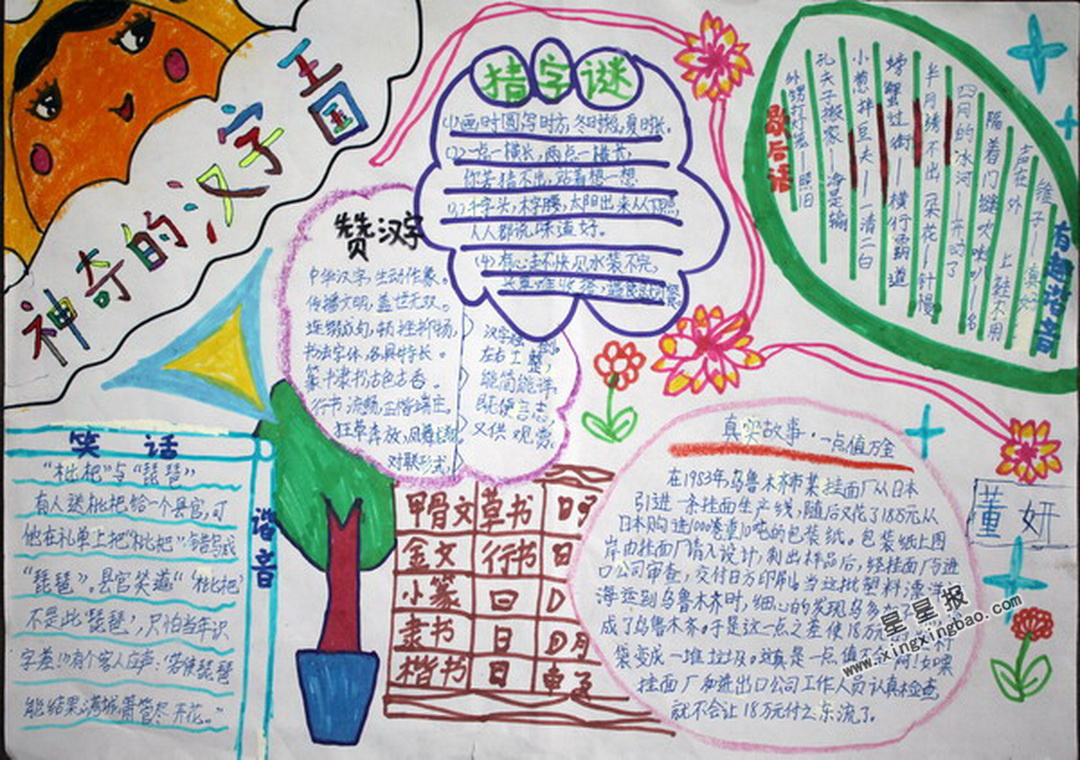 神奇的汉字王国
猜字谜
(1)画时圆,写时方,冬时短,夏时长。
(2)一点一横长,两点一横长,
你若猜不出,站着想一想
(3)千字头,木字腰,太阳出来从下照,
人人都说味道好。
(4)有心走不快,见水装不完,
赞汉字
中华汉字,生动形象。
传播文明,盖世无双。
连缀成句,顿挫抑扬,
书法字体,各具特长。
篆书隶书古色古香。
行书流畅,正楷端庄。
狂草奔放,凤舞
对联形式,
汉字
左右工整,
能简能详,
既便言志,
又供观赏。
有趣谐音
歇后语
外甥打灯笼—照旧
孔夫子搬家—净是输
小葱拌豆腐—一清二白
螃蟹过街—横行霸道
半月绣不出一朵花—针慢
四月的冰河—开动了
隔着门缝吹喇叭—名
声在外
维子—真好
笑话
谐音
“枇杷”与“琵琶”
有人送枇杷给一个县官,可
他在礼单上把“枇杷”错写成
“琵琶”。县官笑道“‘枇杷’
不是此‘琵琶’,只怕当年识
字差!”有个客人应声:“若使琵琶
能结果,满城箫管尽开花。”
甲骨文 草书 日
金文 行书 日
小篆 日
隶书 日 月
楷书 日
真实故事·一点值万金
在1983年,乌鲁木齐市某挂面厂从日本
引进一条挂面生产线,随后又花了18万元从
日本购进1000卷重10吨的包装纸。包装纸上图
岸由挂面厂请人设计,制出样品后,经挂面厂与进
口公司审查,交付日方印刷。当这批塑料漂洋
海运到乌鲁木齐时,细心的发现乌
成了鸟鲁木齐。于是这一点之差使18万元
袋变成一堆垃圾。这真是一点值万金啊!如果
挂面厂和进出口公司工作人员认真检查,
就不会让18万元付之东流了。
董妍
星星报
www.xingxingbao.com